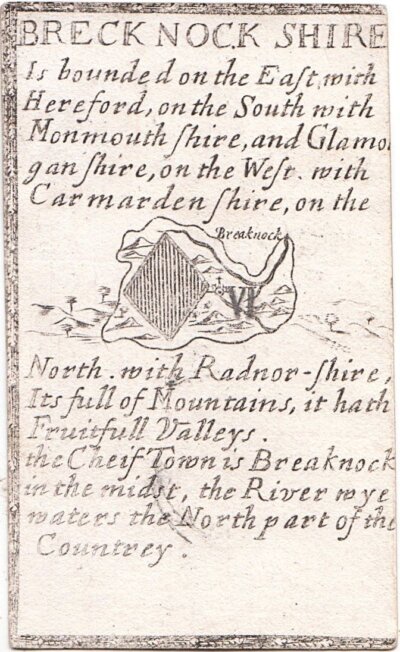 BRECKNOCK SHIRE
Is bounded on the East, with
Hereford, on the South with
Monmouth ſhire, and Glamo
gan ſhire, on the Weſt. with
Carmarden ſhire, on the
Breaknock
VI
North. with Radnor-ſhire,
Its full of Mountains, it hath
Fruitfull Valleys.
the Cheif Town is Breaknock
in the midst, the River wye
waters the North part of the
Countrey.